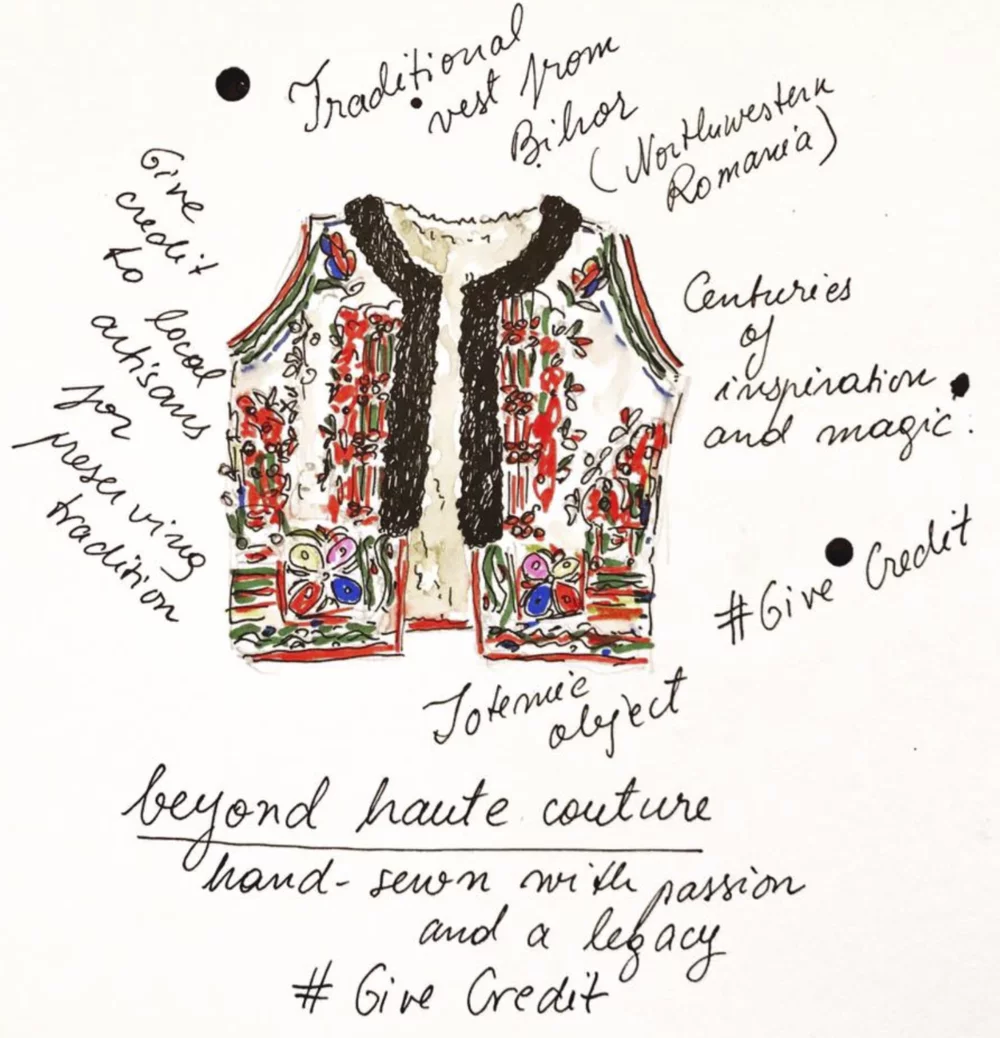 Traditional
vest from
Bihor
(Northuwestern
Romania)
Give
credit
to local
artisans
for
preserving
tradition
Centuries
of
inspiration
and magic.
#Give Credit
Totemic
object
beyond haute couture
hand-sewn with passion
and a legacy
# Give Credit